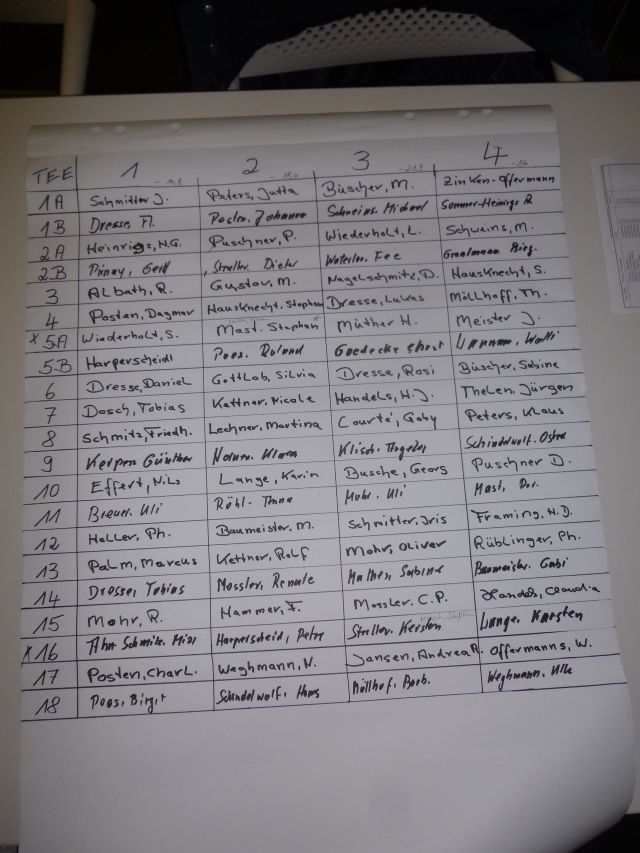 TEE 1 2 3 4
1A Schmitter J. Peters, Jutta Büscher, M. Zinken-Offermann
1B Dresse, Fl. Posten, Johanna Schweins, Michael Sommer-Heinrigs R
2A Heinrigs, H.G. Puschner, P. Wiederholt, L. Schweins, M.
2B Pinnoy, Gerd Straller, Dieter Fee
3 Albath, R. Gustov, M. Nagelschmitz, D. Hausknecht, S.
4 Posten, Dagmar Hausknecht, Stephan Dresse, Lukas Möllhoff, Th.
x 5A Wiederholt, S. Mast, Stephan Müther H. Meister J.
5B Harperscheidt Poos, Roland Goedecke
6 Dresse, Daniel Gottlob, Silvia Dresse, Rosi Büscher, Sabine
7 Dosch, Tobias Kettner, Nicole Handels, H.J. Thelen, Jürgen
8 Schmitz, Friedh. Lechner, Martina Courté, Gaby Peters, Klaus
9 Kerpen Günther
10 Effert, Nils Lange, Karin Busche, Georg Puschner D.
11 Breuer, Uli Röhl- Mohr, Uli Mast,
12 Heller, Ph. Baumeister, M. Schmitter, Iris Framing, H.D.
13 Palm, Marcus Kettner, Ralf Mohr, Oliver Rüblinger, Ph.
14 Dresse, Tobias Mossler, Renate Mathen, Sabine Baumeister, Gabi
15 Mohr, R. Hammer, F. Mossler, C.P. Handels, Claudia
x 16 Harperscheid, Petra Straller, Kersten Lange, Karsten
17 Posten, Charl. Weghmann, N. Jansen, Andrea R. Offermanns, W.
18 Poos, Birgit Schindelwolf, Hans Möllhof, Barb. Weghmann, Ulla